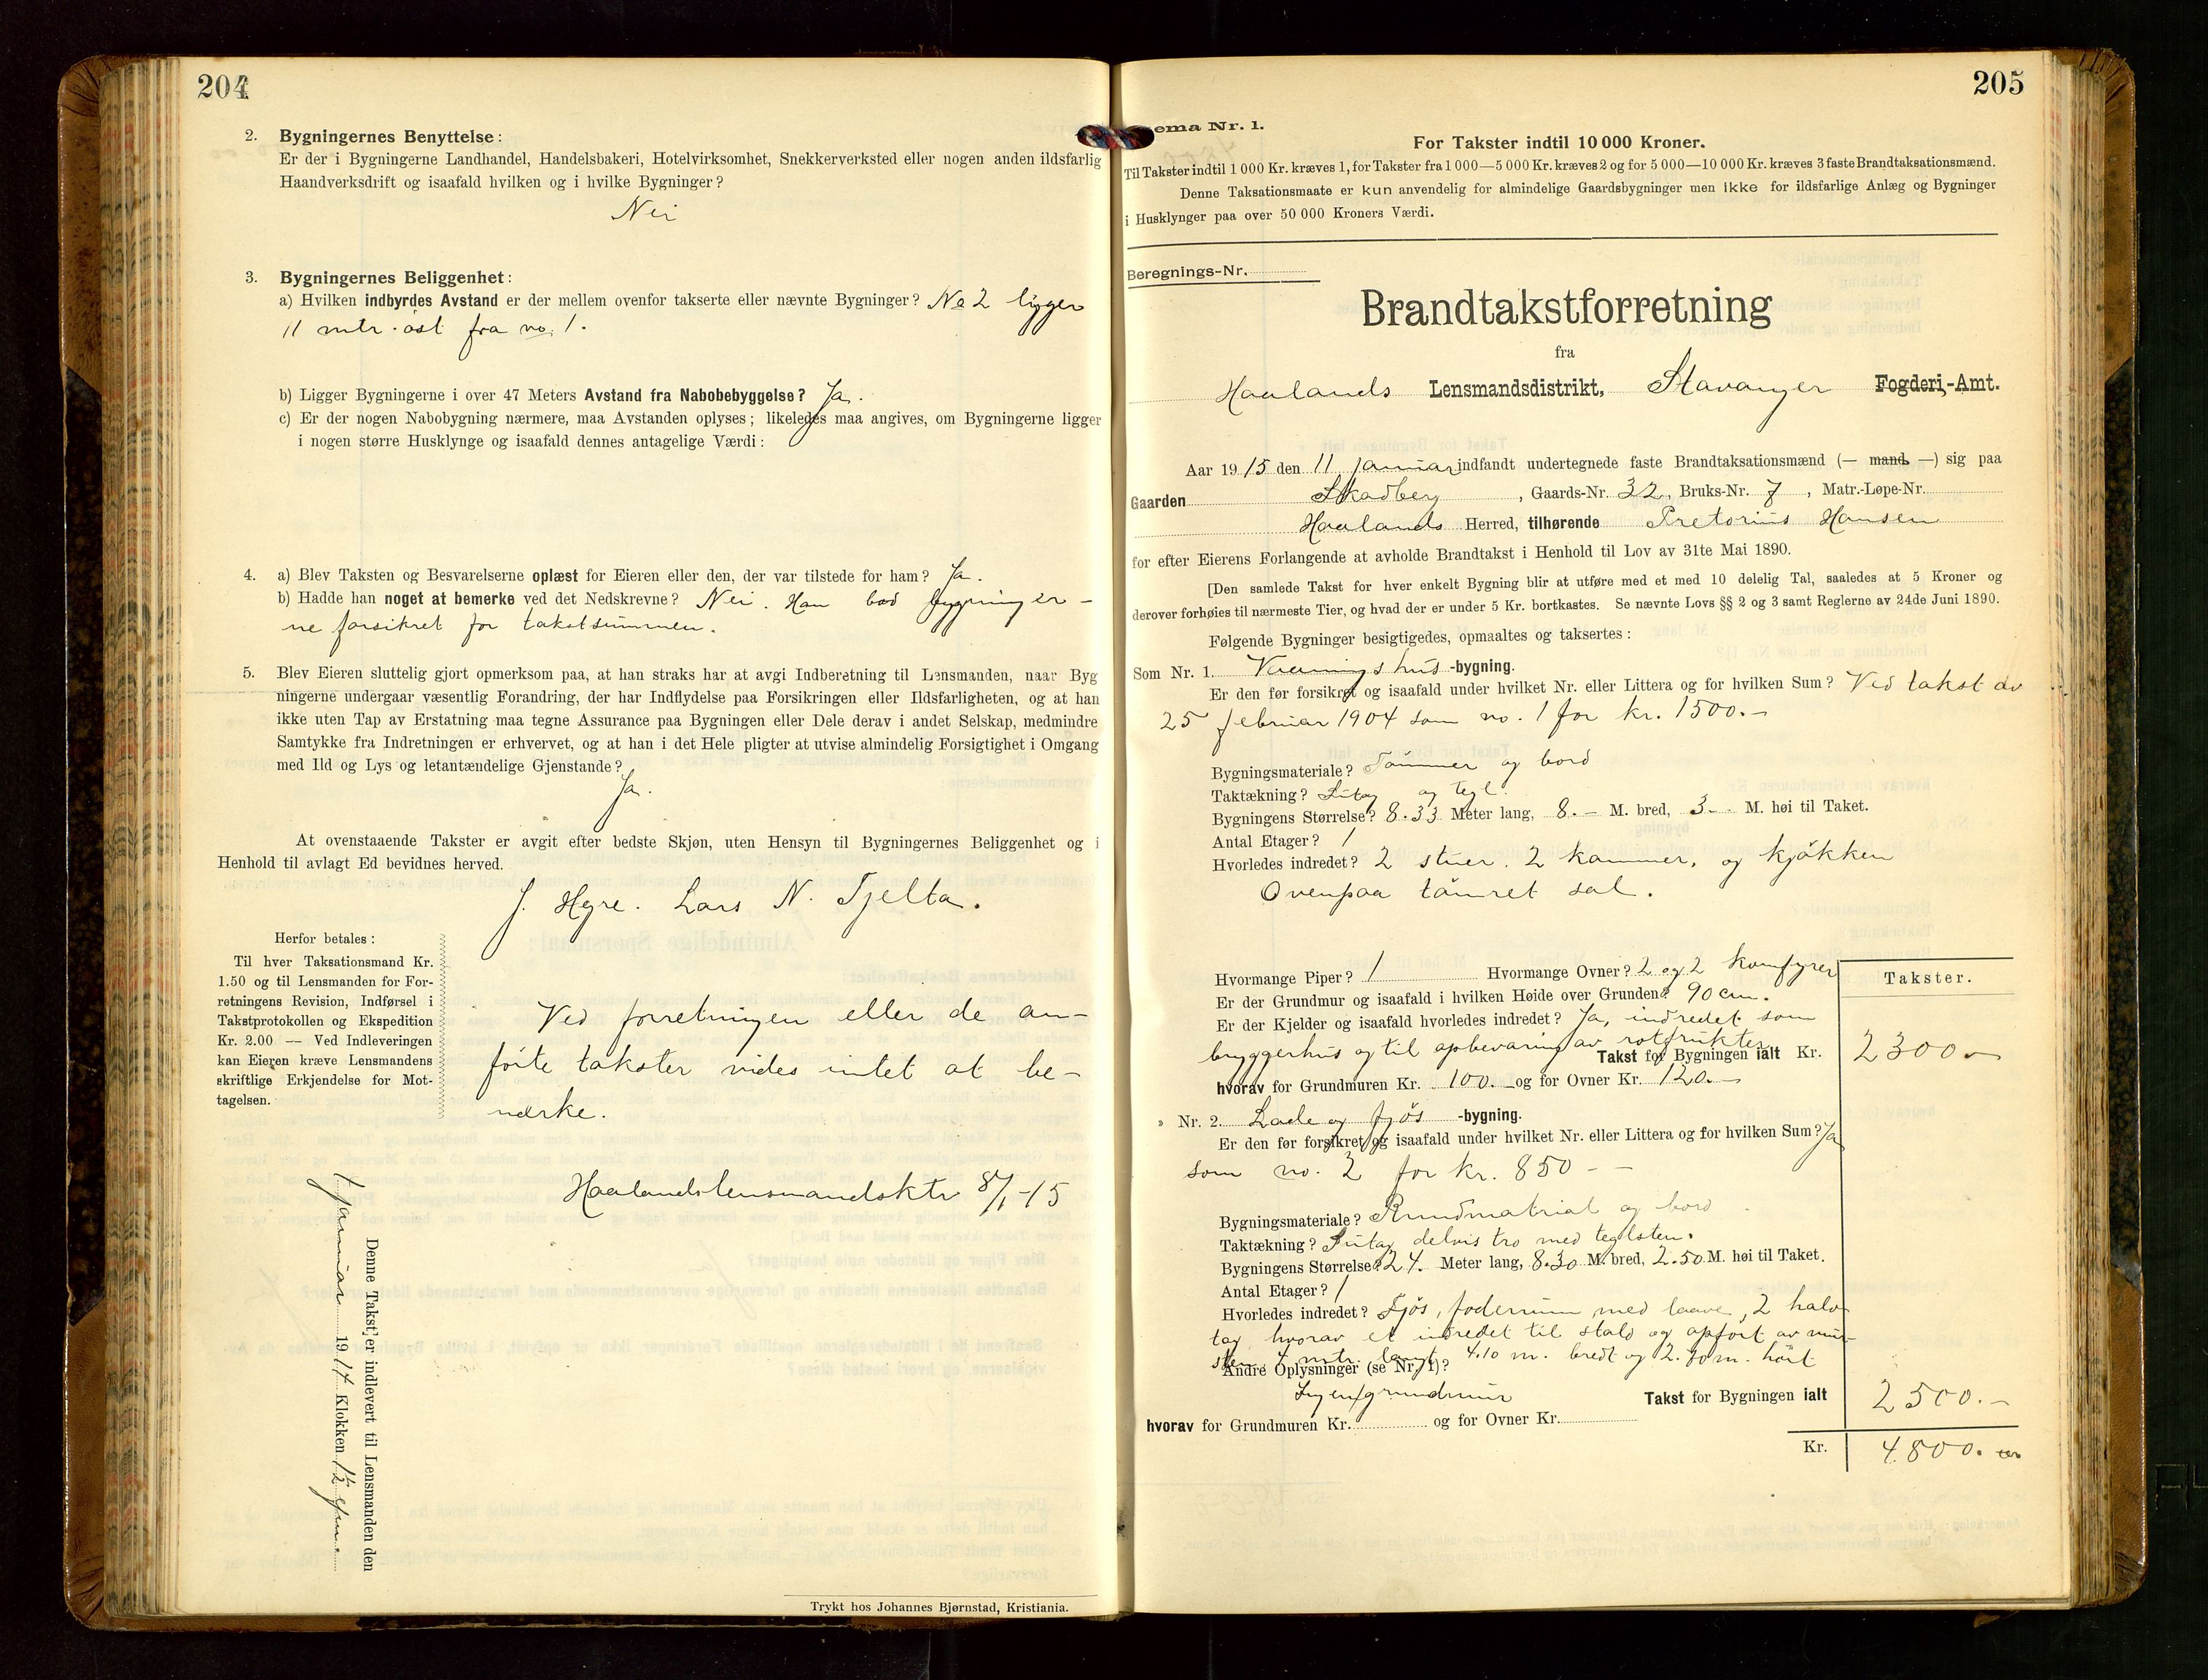 204
2. Bygningernes Benyttelse:
Er der i Bygningerne Landhandel, Handelsbakeri, Hotelvirksomhet, Snekkerverksted eller nogen anden ildsfarlig
Haandverksdrift og isaafald hvilken og i hvilke Bygninger?
Nei
3. Bygningernes Beliggenhet:
a) Hvilken indbyrdes Avstand er der mellem ovenfor takserte eller nævnte Bygninger? No 2 ligger
11 mtr. öst fra no. 1.
b) Ligger Bygningerne i over 47 Meters Avstand fra Nabobebyggelse? Ja.
c) Er der nogen Nabobygning nærmere, maa Avstanden oplyses; likeledes maa angives, om Bygningerne ligger
i nogen større Husklynge og isaafald dennes antagelige Værdi:
4. a) Blev Taksten og Besvarelserne oplæst for Eieren eller den, der var tilstede for ham? Ja.
b) Hadde han noget at bemerke ved det Nedskrevne? Nei. Han bad bygninger-
ne forsikret for takstsummen.
5. Blev Eieren sluttelig gjort opmerksom paa, at han straks har at avgi Indberetning til Lensmanden, naar Byg
ningerne undergaar væsentlig Forandring, der har Indflydelse paa Forsikringen eller Ildsfarligheten, og at han
ikke uten Tap av Erstatning maa tegne Assurance paa Bygningen eller Dele derav i andet Selskap, medmindre
Samtykke fra Indretningen er erhvervet, og at han i det Hele pligter at utvise almindelig Forsigtighet i Omgang
med Ild og Lys og letantændelige Gjenstande?
Ja.
At ovenstaaende Takster er avgit efter bedste Skjøn, uten Hensyn til Bygningernes Beliggenhet og i
Henhold til avlagt Ed bevidnes herved.
J. Hegre. Lars N. Tjelta.
Herfor betales:
Til hver Taksationsmand Kr.
1.50 og til Lensmanden for For-
retningens Revision, Indførsel i
Takstprotokollen og Ekspedition
Kr. 2.00 — Ved Indleveringen
kan Eieren kræve Lensmandens
skriftlige Erkjendelse for Mot-
tagelsen.
Ved forretningen eller de an-
förte takster vides intet at be-
mærke.
Haalandslensmandsktr 8/1-15
Denne Takst er indlevert til Lensmanden den
7 januar 1914 Klokken 1½ efm.
Trykt hos Johannes Bjørnstad, Kristiania.
205
ema Nr. 1.
For Takster indtil 10 000 Kroner.
Til Takster indtil 1 000 Kr. kræves 1, for Takster fra 1 000—5 000 Kr. kræves 2 og for 5 000—10 000 Kr. kræves 3 faste Brandtaksationsmænd.
Denne Taksationsmaate er kun anvendelig for almindelige Gaardsbygninger men ikke for ildsfarlige Anlæg og Bygninger
i Husklynger paa over 50 000 Kroners Værdi.
Beregnings-Nr.
Brandtakstforretning
fra
Haalands Lensmandsdistrikt, Stavanger Fogderi,-Amt.
Aar 1915 den 11 januar indfandt undertegnede faste Brandtaksationsmænd (— mand. —) sig paa
Gaarden Skadberg, Gaards-Nr. 32, Bruks-Nr. 7, Matr.-Løpe-Nr.
Haalands Herred, tilhørende Pretorius Hansen
for efter Eierens Forlangende at avholde Brandtakst i Henhold til Lov av 31te Mai 1890.
[Den samlede Takst for hver enkelt Bygning blir at utføre med et med 10 delelig Tal, saaledes at 5 Kroner og
derover forhøies til nærmeste Tier, og hvad der er under 5 Kr. bortkastes. Se nævnte Lovs §§ 2 og 3 samt Reglerne av 24de Juni 1890.
Følgende Bygninger besigtigedes, opmaaltes og taksertes:
Som Nr. 1. Vaaningshus-bygning.
Er den før forsikret og isaafald under hvilket Nr. eller Littera og for hvilken Sum? Ved takst av
25 februar 1904 som no. 1 for kr. 1500.-
Bygningsmateriale? Tömmer og bord
Taktækning? Sutag og tegl.
Bygningens Størrelse? 8.33 Meter lang, 8.- M. bred, 3.- M. høi til Taket.
Antal Etager? 1
Hvorledes indredet? 2 stuer. 2 kammer, og kjökken
Ovenpaa tömret sal.
Takster.
Hvormange Piper? 1 Hvormange Ovner? 2 og 2 komfyrer
Er der Grundmur og isaafald i hvilken Høide over Grunden? 90 cm.
Er der Kjelder og isaafald hvorledes indredet? Ja, indredet som
bryggerhus og til opbevaring av rotfrukter
Takst for Bygningen ialt Kr. 2300.-
hvorav for Grundmuren Kr. 100.- og for Ovner Kr. 120.-
» Nr. 2. Lade og fjös-bygning.
Er den før forsikret og isaafald under hvilket Nr. eller Littera og for hvilken Sum? Ja
som no. 2 for kr. 850 - -
Bygningsmateriale? Rundmatrial og bord
Taktækning? Sutag delvis tro med teglsten.
Bygningens Størrelse? 24. Meter lang, 8.30 M. bred, 2.50 M. høi til Taket.
Antal Etager? 1
Hvorledes indredet? Fjös, foderrum med laave, 2 halv-
tag hvorav et indredet til stald og opfört av mur-
sten 4 mtr. langt 4.10 m. bredt og m. höit
Andre Oplysninger (se Nr. 1)?
Ingen grundmur
Takst for Bygningen ialt 2500.-
hvorav for Grundmuren Kr. og for Ovner Kr.
Kr. 4.800.